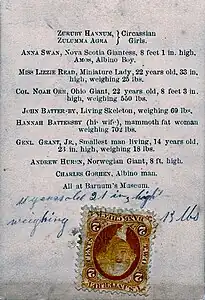 ZURUBY HANNUM, } Circassian
ZULUMMA AGRA } Girls.
ANNA SWAN, Nova Scotia Giantess, 8 feet 1 in. high.
AMOS, Albino Boy.
MISS LIZZIE READ, Miniature Lady, 22 years old, 33 in. high, weighing 25 lbs.
COL. NOAH ORR, Ohio Giant, 22 years old, 8 feet 3 in. high, weighing 550 lbs.
JOHN BATTERSBY, Living Skeleton, weighing 69 lbs.
HANNAH BATTERSBY (his wife), mammoth fat woman weighing 702 lbs.
GENL. GRANT, JR., Smallest man living, 14 years old, 23 in. high, weighing 18 lbs.
ANDREW HURIN, Norwegian Giant, 8 ft. high.
CHARLES GORBEN, Albino man.
All at Barnum's Museum.
years old 21 in high
weighing 13 lbs
2
2